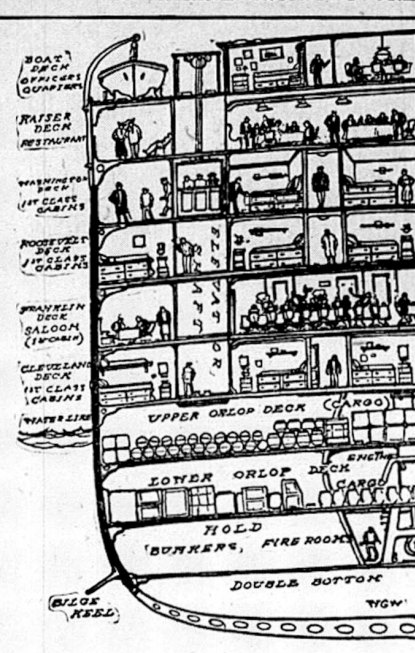 BOAT
DECK
OFFICERS
QUARTERS
KAISER
DECK
RESTAURANT
WASHINGTON
DECK
1ST CLASS
CABINS
ROOSEVELT
DECK
1ST CLASS
CABINS
FRANKLIN
DECK
SALOON
(1ST CABIN)
CLEVELAND
DECK
1ST CLASS
CABINS
WATER LINE
ELEVATOR
SHAFT
UPPER ORLOP DECK (CARGO)
ENGINE
LOWER ORLOP DECK
CARGO
HOLD
BUNKERS, FIRE ROOMS
DOUBLE BOTTOM
BILGE
KEEL